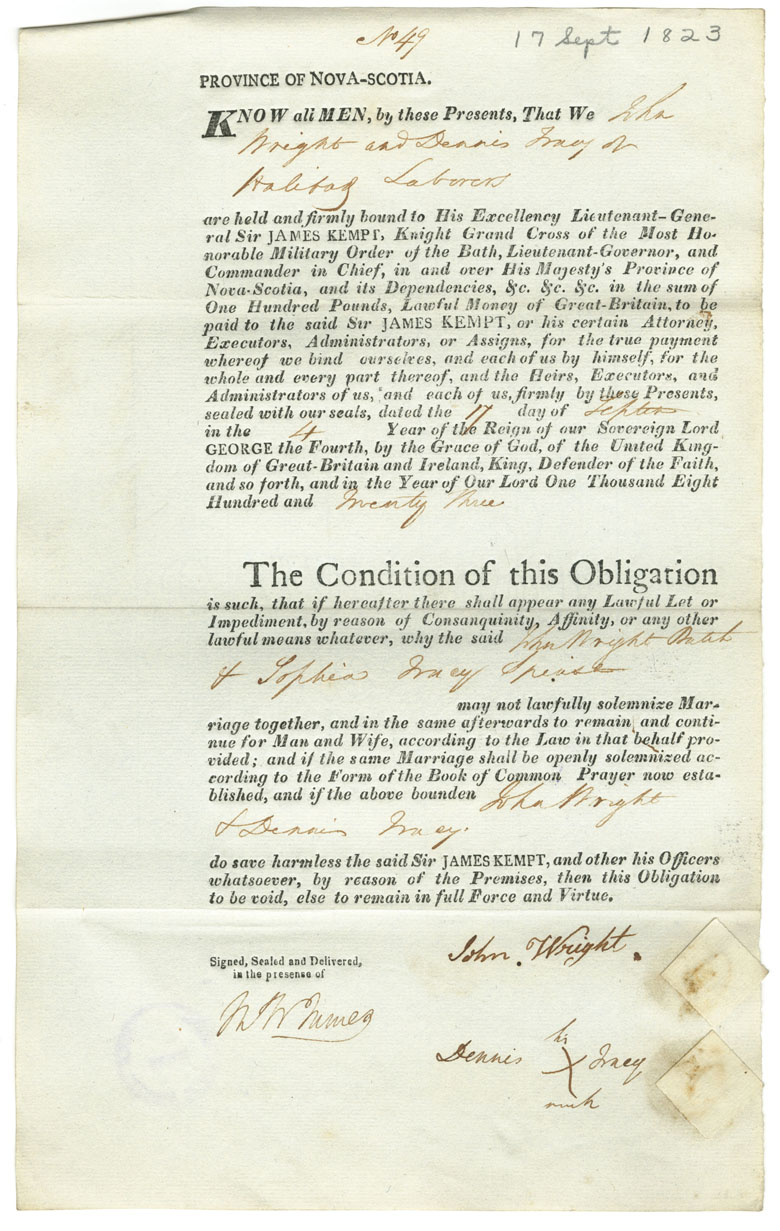 No 49
17 Sept 1823
PROVINCE OF NOVA-SCOTIA.
KNOW all MEN, by these Presents, That We John
Wright and Dennis Tracy of
Halifax Laborers
are held and firmly bound to His Excellency Lieutenant-Gene-
ral Sir JAMES KEMPT, Knight Grand Cross of the Most Ho-
norable Military Order of the Bath, Lieutenant-Governor, and
Commander in Chief, in and over His Majesty's Province of
Nova-Scotia, and its Dependencies, &c. &c. &c. in the sum of
One Hundred Pounds, Lawful Money of Great-Britain, to be
paid to the said Sir JAMES KEMPT, or his certain Attorney,
Executors, Administrators, or Assigns, for the true payment
whereof we bind ourselves, and each of us by himself, for the
whole and every part thereof, and the Heirs, Executors, and
Administrators of us, and each of us, firmly by these Presents,
sealed with our seals, dated the 17 day of Septer
in the 4 Year of the Reign of our Sovereign Lord
GEORGE the Fourth, by the Grace of God, of the United King-
dom of Great-Britain and Ireland, King, Defender of the Faith,
and so forth, and in the Year of Our Lord One Thousand Eight
Hundred and Twenty Three
The Condition of this Obligation
is such, that if hereafter there shall appear any Lawful Let or
Impediment, by reason of Consanquinity, Affinity, or any other
lawful means whatever, why the said John Wright Batch
& Sophia Tracy
may not lawfully solemnize Mar-
riage together, and in the same afterwards to remain and conti-
nue for Man and Wife, according to the Law in that behalf pro-
vided; and if the same Marriage shall be openly solemnized ac-
cording to the Form of the Book of Common Prayer now esta-
blished, and if the above bounden John Wright
& Dennis Tracy.
do save harmless the said Sir JAMES KEMPT, and other his Officers
whatsoever, by reason of the Premises, then this Obligation
to be void, else to remain in full Force and Virtue.
Signed, Sealed and Delivered,
in the presence of
John Wright.
his
Dennis X Tracy
mark